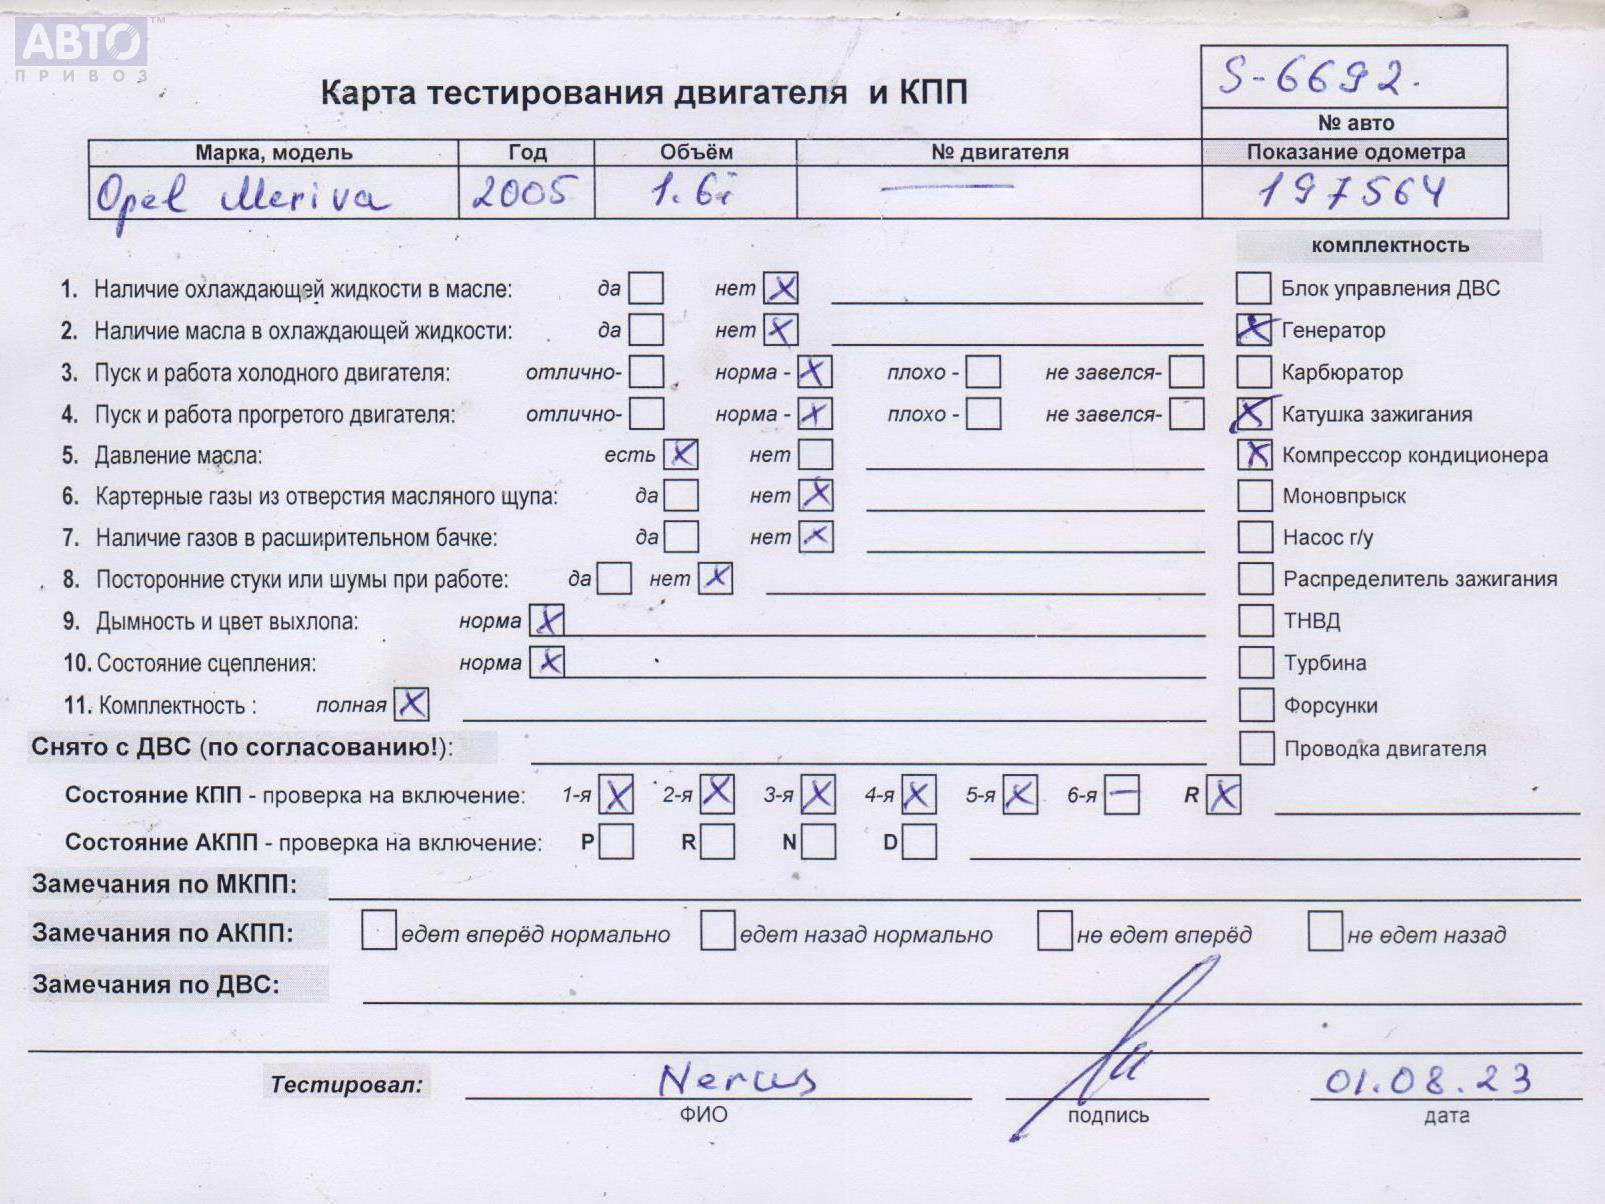 АВТО™
ПРИВОЗ
S-6692.
Карта тестирования двигателя и КПП
№ авто
Марка, модель Год Объём № двигателя Показание одометра
Opel Meriva 2005 1.6i — 197564
комплектность
1. Наличие охлаждающей жидкости в масле: да нет X Блок управления ДВС
2. Наличие масла в охлаждающей жидкости: да нет X X Генератор
3. Пуск и работа холодного двигателя: отлично- норма - X плохо - не завелся- Карбюратор
4. Пуск и работа прогретого двигателя: отлично- норма - X плохо - не завелся- X Катушка зажигания
5. Давление масла: есть X нет X Компрессор кондиционера
6. Картерные газы из отверстия масляного щупа: да нет X Моновпрыск
7. Наличие газов в расширительном бачке: да нет X Насос г/у
8. Посторонние стуки или шумы при работе: да нет X Распределитель зажигания
9. Дымность и цвет выхлопа: норма X ТНВД
10. Состояние сцепления: норма X Турбина
11. Комплектность : полная X Форсунки
Снято с ДВС (по согласованию!): Проводка двигателя
Состояние КПП - проверка на включение: 1-я X 2-я X 3-я X 4-я X 5-я X 6-я — R X
Состояние АКПП - проверка на включение: P R N D
Замечания по МКПП:
Замечания по АКПП: едет вперёд нормально едет назад нормально не едет вперёд не едет назад
Замечания по ДВС:
Тестировал: Nerus 01.08.23
ФИО подпись дата